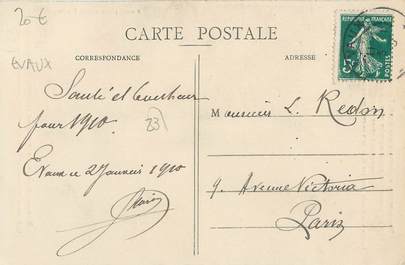 20 €
CARTE POSTALE
EVAUX
CORRESPONDANCE
ADRESSE
REPUBLIQUE FRANÇAISE
5c
POSTES
Santé et bonheur
pour 1910
23
Evaux le 2 Janvier 1910
Monsieur L. Redon
9, Avenue Victoria
Paris